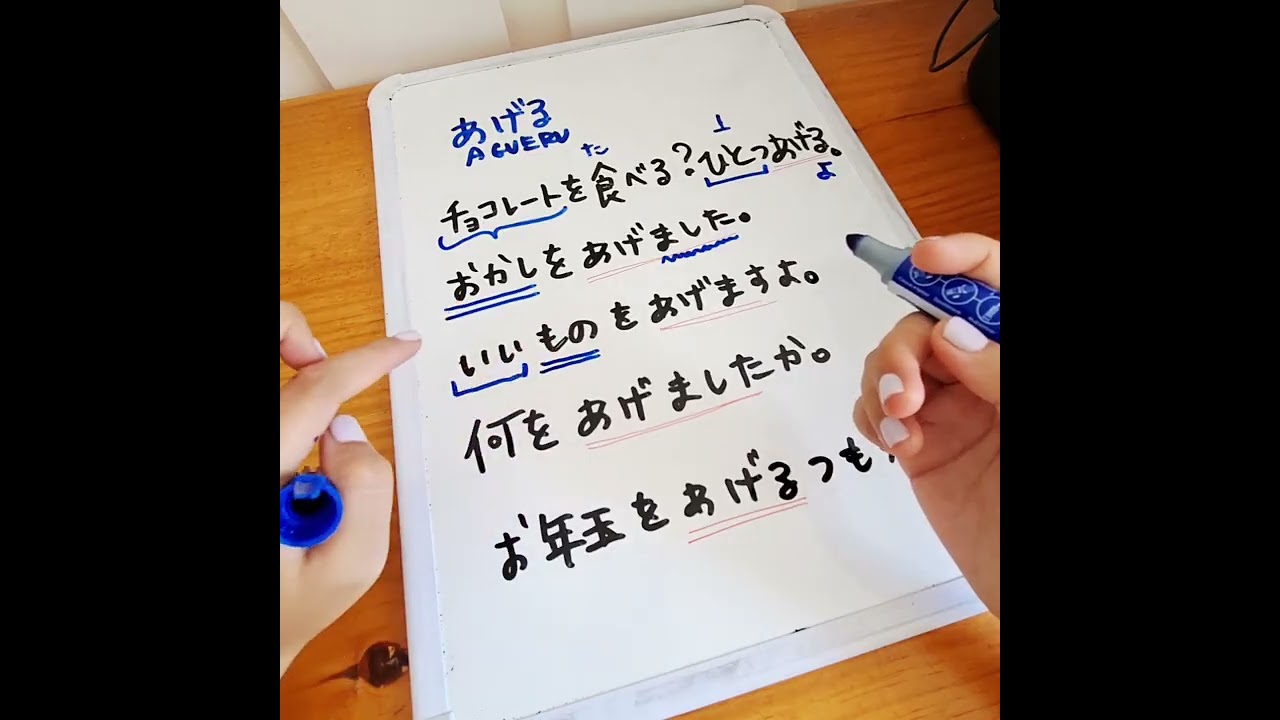 あげる
AGUERU
た 1
チョコレートを食べる?ひとつあげる。
よ
おかしをあげました。
いいものをあげますよ。
何をあげましたか。
お年玉をあげるつも